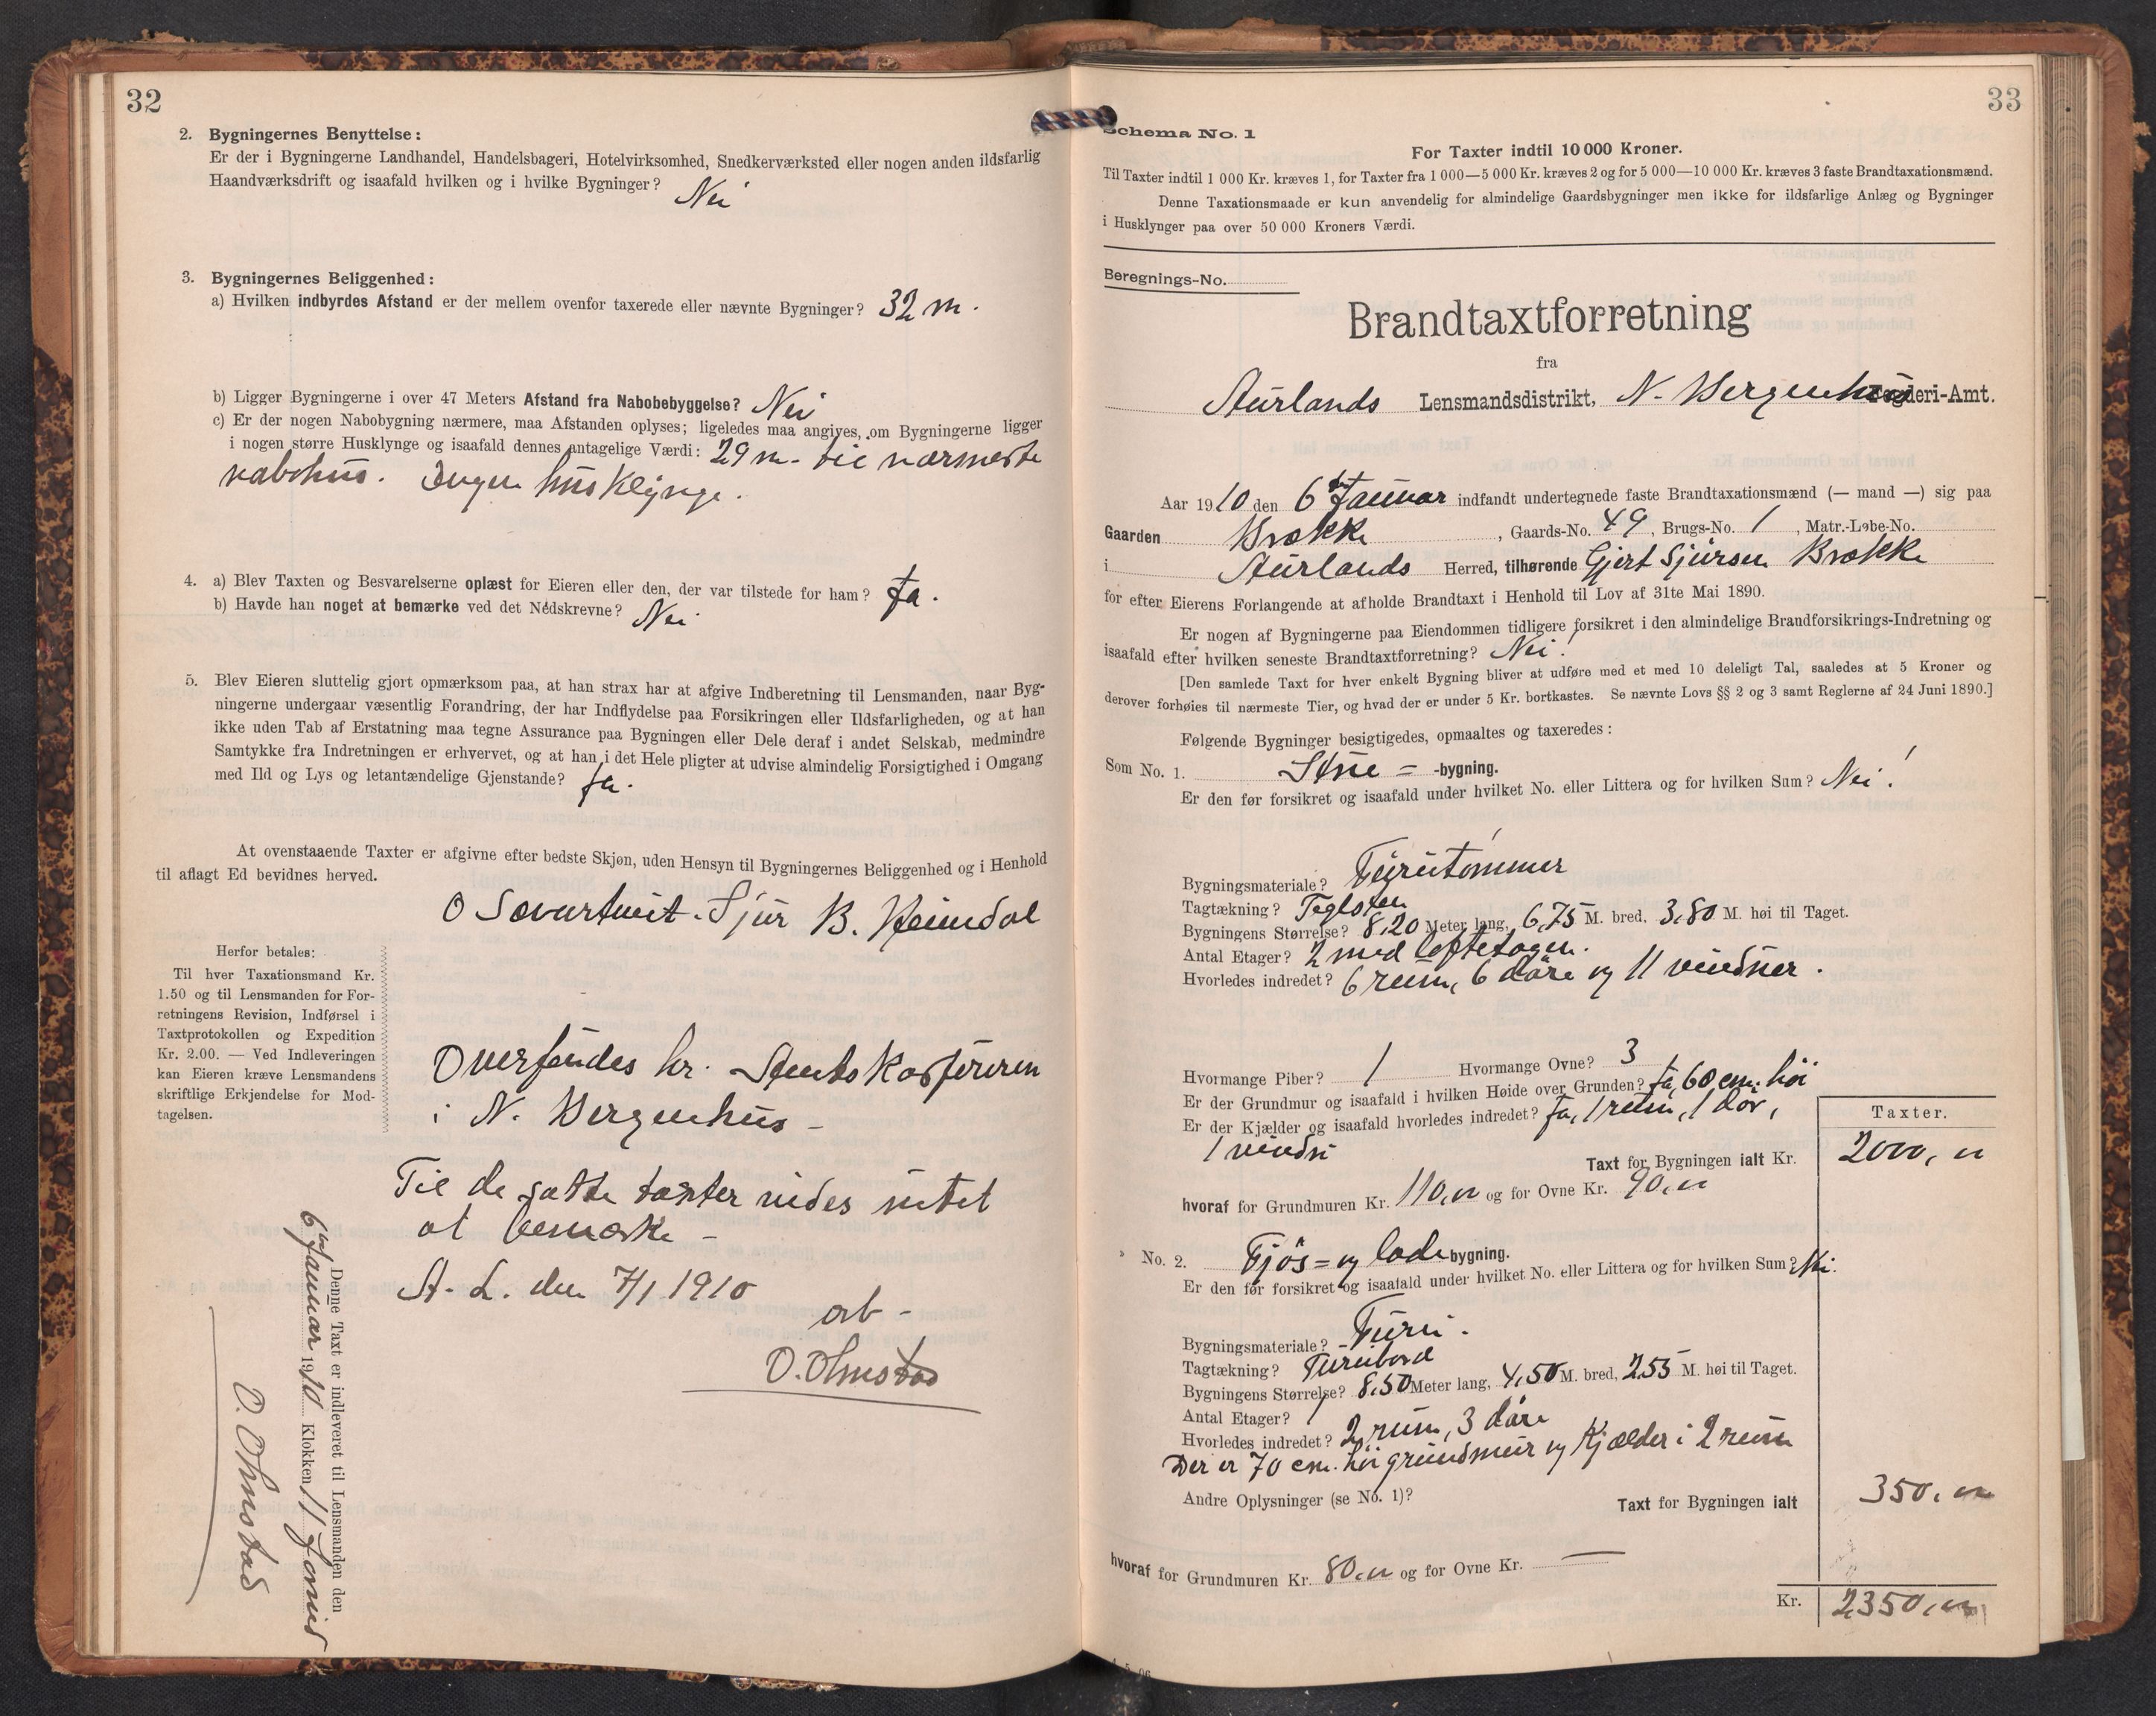 32
2. Bygningernes Benyttelse:
Er der i Bygningerne Landhandel, Handelsbageri, Hotelvirksomhed, Snedkerværksted eller nogen anden ildsfarlig
Haandværksdrift og isaafald hvilken og i hvilke Bygninger? Nei
3. Bygningernes Beliggenhed:
a) Hvilken indbyrdes Afstand er der mellem ovenfor taxerede eller nævnte Bygninger? 32 m.
b) Ligger Bygningerne i over 47 Meters Afstand fra Nabobebyggelse? Nei
c) Er der nogen Nabobygning nærmere, maa Afstanden oplyses; ligeledes maa angives, om Bygningerne ligger
i nogen større Husklynge og isaafald dennes antagelige Værdi: 29 m. til nærmeste
nabohus. Ingen husklynge.
4. a) Blev Taxten og Besvarelserne oplæst for Eieren eller den, der var tilstede for ham? Ja.
b) Havde han noget at bemærke ved det Nedskrevne? Nei
5. Blev Eieren sluttelig gjort opmærksom paa, at han strax har at afgive Indberetning til Lensmanden, naar Byg-
ningerne undergaar væsentlig Forandring, der har Indflydelse paa Forsikringen eller Ildsfarligheden, og at han
ikke uden Tab af Erstatning maa tegne Assurance paa Bygningen eller Dele deraf i andet Selskab, medmindre
Samtykke fra Indretningen er erhvervet, og at han i det Hele pligter at udvise almindelig Forsigtighed i Omgang
med Ild og Lys og letantændelige Gjenstande? Ja.
At ovenstaaende Taxter er afgivne efter bedste Skjøn, uden Hensyn til Bygningernes Beliggenhed og i Henhold
til aflagt Ed bevidnes herved.
O Sjur B. Heimdal
Herfor betales:
Til hver Taxationsmand Kr.
1.50 og til Lensmanden for For-
retningens Revision, Indførsel i
Taxtprotokollen og Expedition
Kr. 2.00. — Ved Indleveringen
kan Eieren kræve Lensmandens
skriftlige Erkjendelse for Mod-
tagelsen.
Oversendes hr. Amtskassereren
i N. Bergenhus -
Til de satte taxter vides intet
at bemærke -
A. L. den 7/1 1910
arb -
O. Ohnstad
Denne Taxt er indleveret til Lensmanden den
6te Januar 1910 Klokken 11 formid
O. Ohnstad
33
Schema No. 1
For Taxter indtil 10 000 Kroner.
Til Taxter indtil 1 000 Kr. kræves 1, for Taxter fra 1 000—5 000 Kr. kræves 2 og for 5 000—10 000 Kr. kræves 3 faste Brandtaxationsmænd.
Denne Taxationsmaade er kun anvendelig for almindelige Gaardsbygninger men ikke for ildsfarlige Anlæg og Bygninger
i Husklynger paa over 50 000 Kroners Værdi.
Beregnings-No.
Brandtaxtforretning
fra
Aurlands Lensmandsdistrikt, N. Bergenhus Fogderi-Amt.
Aar 1910 den 6te Januar indfandt undertegnede faste Brandtaxationsmænd (— mand —) sig paa
Gaarden Brekke, Gaards-No. 49, Brugs-No. 1, Matr.-Løbe-No.
i Aurlands Herred, tilhørende Gjert Sjursen Brekke
for efter Eierens Forlangende at afholde Brandtaxt i Henhold til Lov af 31te Mai 1890.
Er nogen af Bygningerne paa Eiendommen tidligere forsikret i den almindelige Brandforsikrings-Indretning og
isaafald efter hvilken seneste Brandtaxtforretning? Nei!
[Den samlede Taxt for hver enkelt Bygning bliver at udføre med et med 10 deleligt Tal, saaledes at 5 Kroner og
derover forhøies til nærmeste Tier, og hvad der er under 5 Kr. bortkastes. Se nævnte Lovs §§ 2 og 3 samt Reglerne af 24 Juni 1890.]
Følgende Bygninger besigtigedes, opmaaltes og taxeredes:
Som No. 1. Stue = -bygning.
Er den før forsikret og isaafald under hvilket No. eller Littera og for hvilken Sum? Nei!
Bygningsmateriale? Furutømmer
Tagtækning? Teglsten
Bygningens Størrelse? 8,20 Meter lang, 6,75 M. bred, 3,80 M. høi til Taget.
Antal Etager? 2 med loftetagen.
Hvorledes indredet? 6 rum, 6 døre og 11 vinduer.
Hvormange Piber? 1 Hvormange Ovne? 3
Er der Grundmur og isaafald i hvilken Høide over Grunden? Ja, 60 cm. høi
Er der Kjælder og isaafald hvorledes indredet? Ja, 1 rum, 1 dør,
1 vindu
Taxter.
Taxt for Bygningen ialt Kr. 2000,
hvoraf for Grundmuren Kr. 110, og for Ovne Kr. 90,
No. 2. Fjøs = og lade bygning.
Er den før forsikret og isaafald under hvilket No. eller Littera og for hvilken Sum? Nei.
Bygningsmateriale? Furu.
Tagtækning? Furubord
Bygningens Størrelse? 8,50 Meter lang, 4,50 M. bred, 2,55 M. høi til Taget.
Antal Etager? 1
Hvorledes indredet? 2 rum, 3 døre
Der er 70 cm. høi grundmur og Kjælder i 2 rum
Andre Oplysninger (se No. 1)? Taxt for Bygningen ialt 350,
hvoraf for Grundmuren Kr. 80, og for Ovne Kr. —
Kr. 2350,